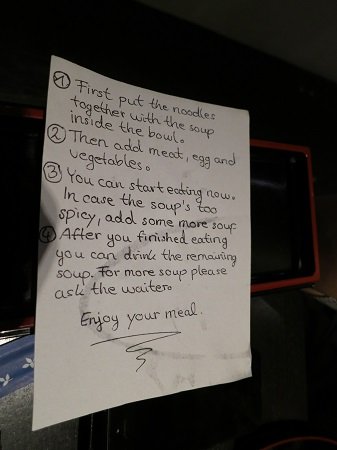 ① First put the noodles
together with the soup
inside the bowl.
② Then add meat, egg and
vegetables.
③ You can start eating now.
In case the soup's too
spicy, add some more soup
④ After you finished eating
you can drink the remaining
soup. For more soup please
ask the waiter.
Enjoy your meal.